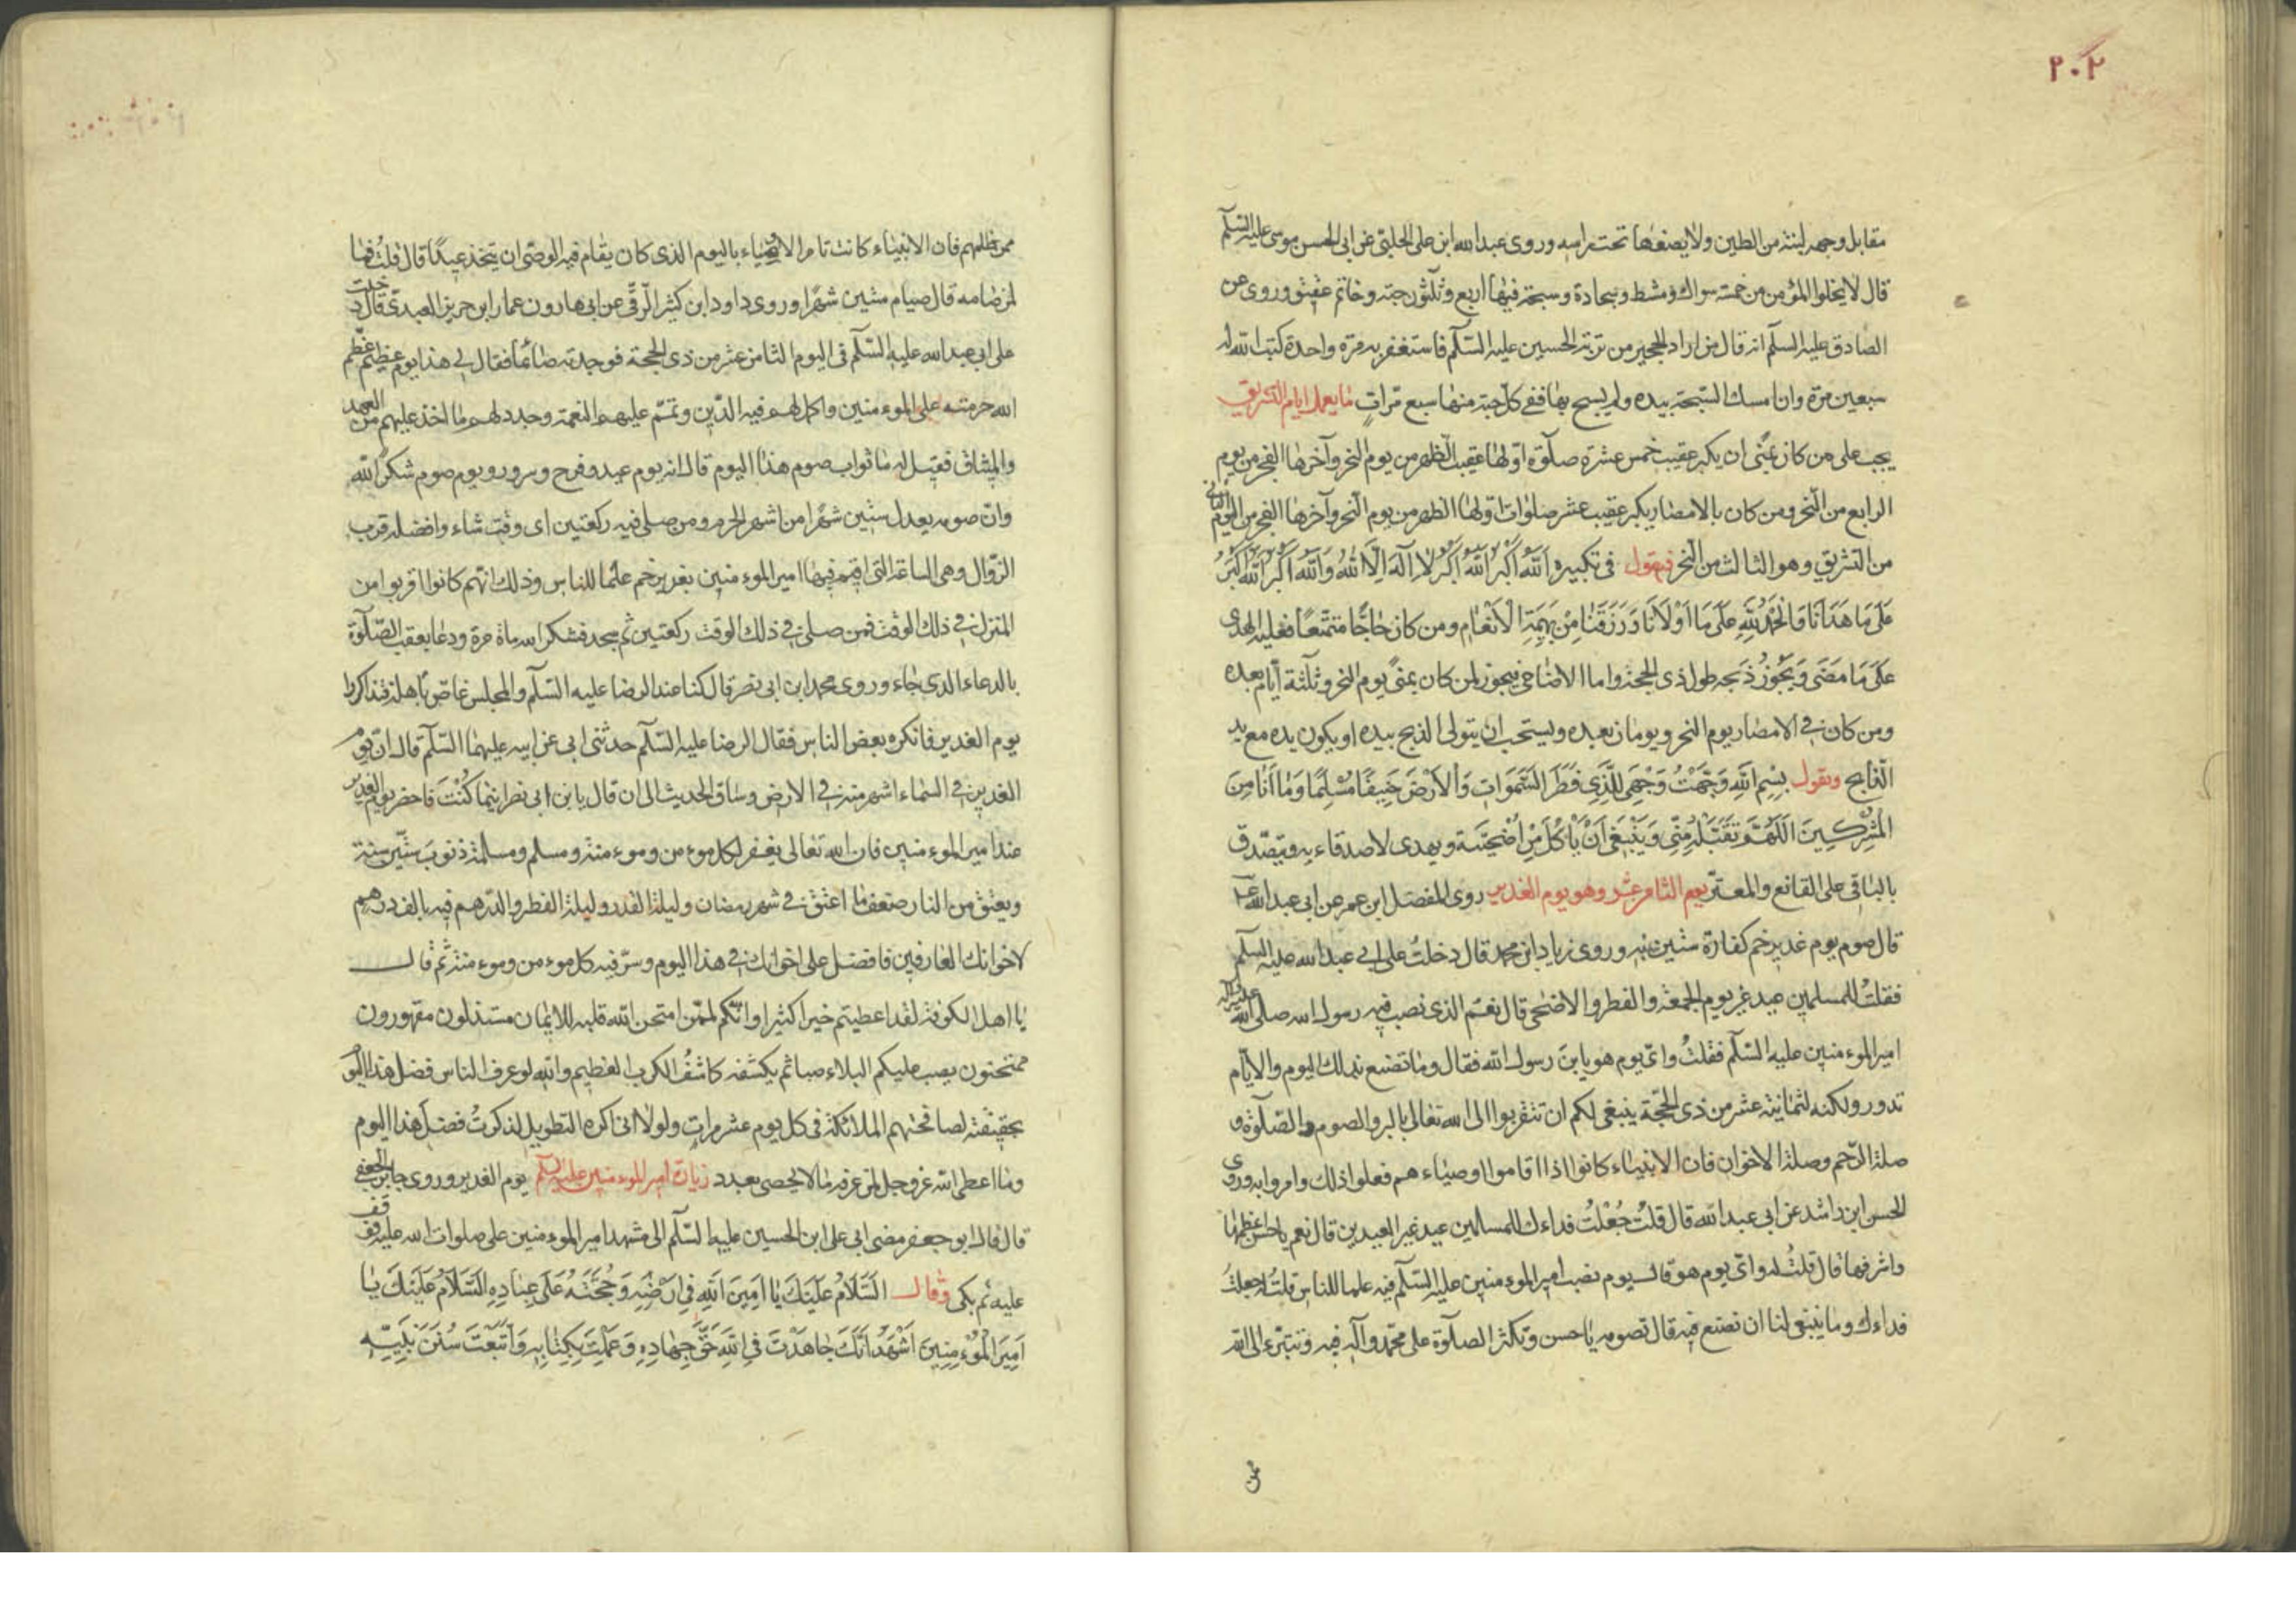 ٢٠٢
مقابل وجهه لبنة من الطين ولا يضعها تحت راسه وروى عبدالله ابن على الحلبي عن ابى الحسن موسى عليه السلم
قال لا يخلوا المؤمن من خمسة سواك ومشط وسجادة وسبحة فيها اربع وثلثون حبة وخاتم عقيق وروى عن
الصادق عليه السلم انه قال من اراد الحجير من تربة الحسين عليه السلم فاستغفر به مرة واحدة كتب الله له
سبعين مرة وان امسك السبحة بيده ولم يسبح بها ففى كل حبة منها سبع مرات ما يعمل ايام التشريق
يجب على من كان بمنى ان يكبر عقيب خمس عشرة صلوة اولها عقيب الظهر من يوم النحر وآخرها الفجر من يوم
الرابع من النحر ومن كان بالامصار يكبر عقيب عشر صلوات اولها الظهر من يوم النحر وآخرها الفجر من اليوم الثانى
من التشريق وهو الثالث من النحر فيقول فى تكبيره اَللّٰهُ اَكْبَرُ اَللّٰهُ اَكْبَرُ لا اِلٰهَ اِلَّا اللّٰهُ وَاللّٰهُ اَكْبَرُ اَللّٰهُ اَكْبَرُ
عَلَى مَا هَدَانَا وَالْحَمْدُ لِلّٰهِ عَلَى مَا اَوْلَانَا وَرَزَقَنَا مِنْ بَهِيمَةِ الْاَنْعَامِ ومن كان حاجًا متمتعًا فعليه الهدى
عَلَى مَا مَضَى وَيَجُوزُ ذَبحه طول ذى الحجة واما الاضاحى فيجوز لمن كان بمنى يوم النحر وثلثة ايام بعده
ومن كان فى الامصار يوم النحر ويومان بعده ويستحب ان يتولى الذبح بيده او يكون يده مع يد
الذابح ويقول بِسْمِ اللّٰهِ وَجَّهْتُ وَجْهِىَ لِلَّذِى فَطَرَ السَّمَوَاتِ وَالْاَرْضَ حَنِيفًا مُسْلِمًا وَمَا اَنَا مِنَ
الْمُشْرِكِينَ اَللّٰهُمَّ تَقَبَّلْهُ مِنِّى وَيَنْبَغِى اَنْ يَاْكُلَ مِنْ اُضْحِيَّتِهِ ويهدى لاصدقاءيه ويتصدق
بالباقى على القانع والمعتر يوم الثامن عشر وهو يوم الغدير روى المفضل ابن عمر عن ابى عبدالله ع
قال صوم يوم غدير خم كفارة ستين سنه وروى زياد ابن محمد قال دخلتُ على ابى عبدالله عليه السلم
فقلتُ للمسلمين عيد غير يوم الجمعة والفطر والاضحى قال نعم الذى نصب فيه رسول الله صلى الله عليه وآله
امير الموءمنين عليه السلم فقلتُ واىّ يوم هو يابن رسول الله فقال وما تصنع بذلك اليوم والايام
تدور ولكنه لثمانية عشر من ذى الحجة ينبغى لكم ان تتقربوا الى الله تعالى بالبر والصوم والصلوة و
صلة الرحم وصلة الاخوان فان الانبياء كانوا اذا اقاموا اوصياءهم فعلوا ذلك وامروا به وروى
الحسن ابن راشد عن ابى عبدالله قال قلتُ جُعْلتُ فداءك للمسلمين عيد غير العيدين قال نعم ياحسن اعظمها
واشرفها قال قلتُ له واىّ يوم هو قال يوم نصب امير الموءمنين عليه السلم فيه علما للناس قلتُ له جعلتُ
فداءك وما ينبغى لنا ان نصنع فيه قال تصومه ياحسن وتكثر الصلوة على محمد وآله فيه وتتبرء الى الله
ممن
ممن ظلمهم فان الانبياء كانت تامر الاوصياء باليوم الذى كان يقام فيه الوصى ان يتخذ عيدًا قال قلتُ فما
لمن صامه قال صيام ستين شهرًا وروى داود ابن كثير الرقى عن ابى هارون عمار ابن حريز العبدى قال دخلت
على ابى عبدالله عليه السلم فى اليوم الثامن عشر من ذى الحجة فوجدته صائمًا فقال لى هذا يوم عظيم عظم
الله حرمته على الموءمنين واكمل لهم فيه الدين وتمم عليهم النعمة وجدد لهم ما اخذ عليهم من العهد
والميثاق فقيل له ما ثواب صوم هذا اليوم قال انه يوم عيد وفرح وسرور ويوم صوم شكرًا لله
وانّ صومه يعدل ستين شهرًا من اشهر الحرم ومن صلى فيه ركعتين اى وقت شاء وافضله قرب
الزوال وهى الساعة التى اقيم فيها امير الموءمنين بغدير خم علما للناس وذلك انهم كانوا قربوا من
المنزل فى ذلك الوقت فمن صلى فى ذلك الوقت ركعتين ثم سجد فشكر الله ماة مرة ودعا بعقب الصلوة
بالدعاء الذى جاء وروى محمد ابن ابى نصر قال كنا عند الرضا عليه السلم والمجلس غاصّ باهله فتذاكروا
يوم الغدير فانكره بعض الناس فقال الرضا عليه السلم حدثنى ابى عن ابيه عليهما السلم قال انّ يوم
الغدير فى السماء اشهر منه فى الارض وساق الحديث الى ان قال يابن ابى نصر اينما كُنْتَ فاحضر يوم الغدير
عند امير الموءمنين فان الله تعالى يغفر لكل موءمن وموءمنة ومسلم ومسلمة ذنوب ستّين سنة
ويعتق من النار ضعف ما اعتق فى شهر رمضان وليلة القدر وليلة الفطر والدرهم فيه بالف درهم
لاخوانك العارفين فافضل على اخوانك فى هذا اليوم وسرّ فيه كل موءمن وموءمنة ثم قال
يا اهل الكوفة لقد اعطيتم خيرا كثيرا وانكم لممّن امتحن الله قلبه للايمان مستذلون مقهورون
ممتحنون يصب عليكم البلاء صبا ثم يكشفه كاشفُ الكرب العظيم والله لو عرف الناس فضل هذا اليوم
بحقيقته لصافحتهم الملائكة فى كل يوم عشر مرات ولولا انى اكره التطويل لذكرتُ فضل هذا اليوم
وما اعطى الله عز وجل لمن عرفه ما لا يحصى بعدد زيارة امير الموءمنين عليه السلم يوم الغدير وروى جابر الجعفى
قال قال ابو جعفر مضى ابى على ابن الحسين عليهما السلم الى مشهد امير الموءمنين على صلوات الله عليه فوقف
عليه ثم بكى وقال اَلسَّلَامُ عَلَيْكَ يَا اَمِينَ اللّٰهِ فِى اَرْضِهِ وَحُجَّتَهُ عَلَى عِبَادِهِ اَلسَّلَامُ عَلَيْكَ يَا
اَمِيرَ الْمُوْءمِنِينَ اَشْهَدُ اَنَّكَ جَاهَدْتَ فِى اللّٰهِ حَقَّ جِهَادِهِ وَعَمِلْتَ بِكِتَابِهِ وَاتَّبَعْتَ سُنَنَ نَبِيِّهِ